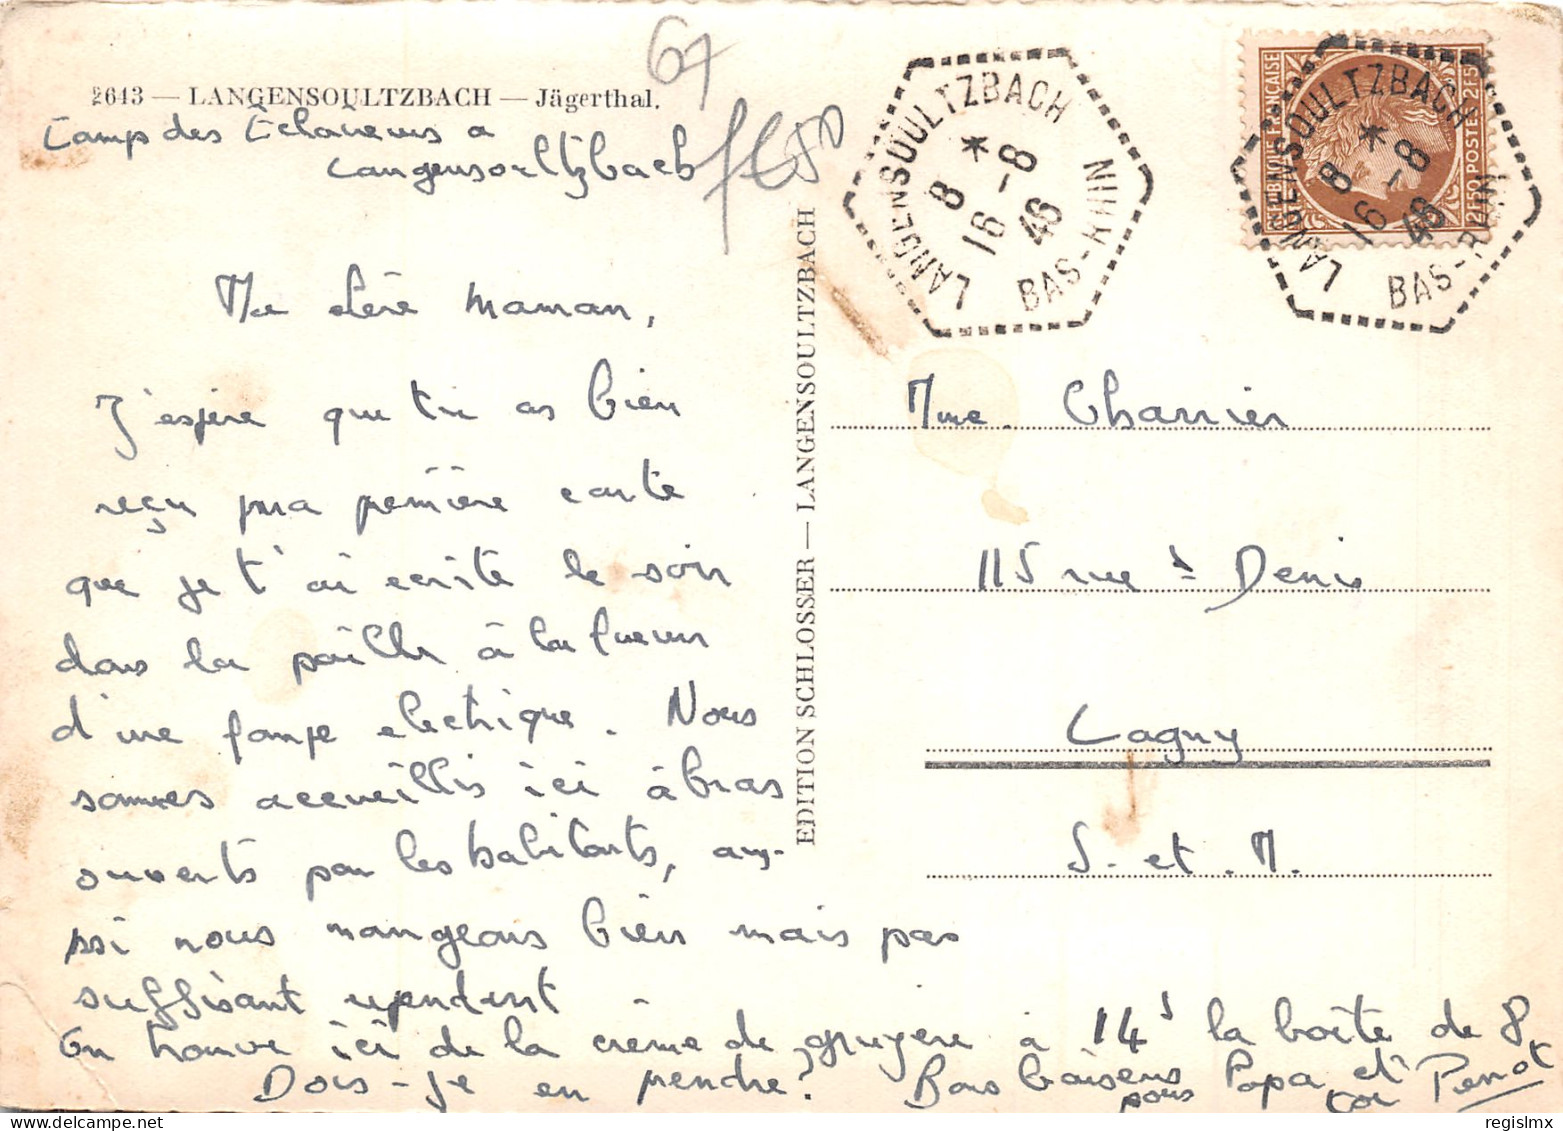 67
2643 — LANGENSOULTZBACH — Jägerthal.
Camp des Éclaireurs a
Langensoultzbach
Ma chère Maman,
J'espère que tu as bien
reçu ma première carte
que je t'ai ecrite le soir
dans la paille à la lueur
d'une lampe electrique. Nous
sommes accueillis ici à bras
ouverts par les habitants, aus-
si nous mangeons bien mais pas
suffisant cependant
On trouve ici de la crème de gruyère à 14s la boîte de 8
Dois-je en prendre? Bons baisers Papa et
pour toi Perrot
EDITION SCHLOSSER — LANGENSOULTZBACH
LANGENSOULTZBACH
* 8
16 -8
46
BAS-RHIN
REPUBLIQUE FRANÇAISE
2F50 POSTES 2F50
LANGENSOULTZBACH
* 8
16 -8
46
BAS-RHIN
Mme Charrier
115 rue St Denis
Lagny
S. et. M.
regislmx